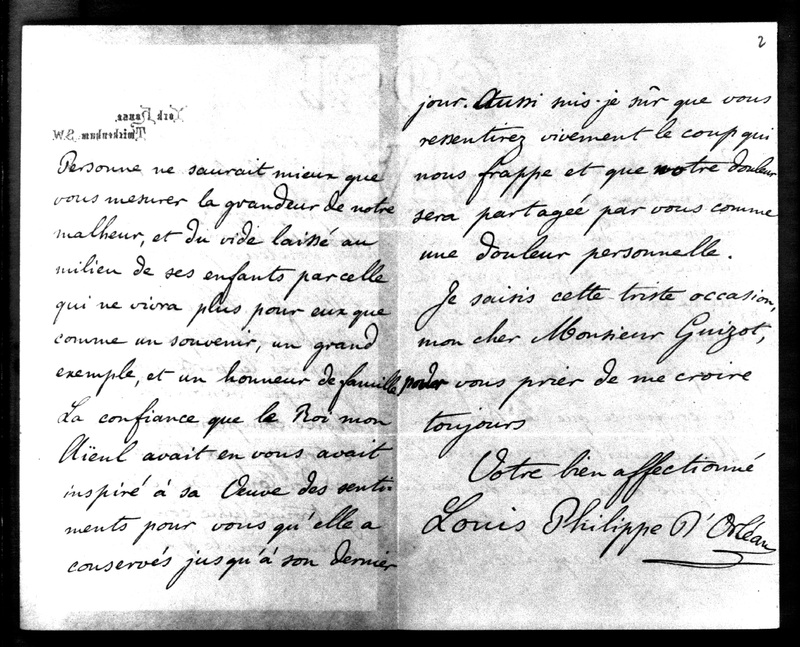 2
York House,
Twickenham. S.W.
Personne ne saurait mieux que
vous mesurer la grandeur de notre
malheur, et du vide laissé au
milieu de ses enfants par celle
qui ne vivra plus pour eux que
comme un souvenir, un grand
exemple, et un honneur de famille
La confiance que le Roi mon
Aïeul avait en vous avait
inspiré à sa Veuve des senti-
ments pour vous qu'elle a
conservés jusqu'à son dernier
jour. Aussi suis-je sûr que vous
ressentirez vivement le coup qui
nous frappe et que notre douleur
sera partagée par vous comme
une douleur personnelle.
Je saisis cette triste occasion,
mon cher Monsieur Guizot,
pour vous prier de me croire
toujours
Votre bien affectionné
Louis Philippe D'Orléans